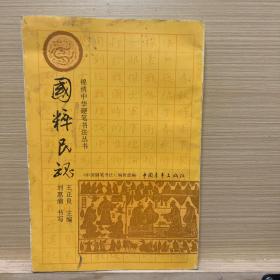 锦绣中华硬笔书法丛书
國粹民魂
王正良 主编
刘惠浦 书写
《中国钢笔书法》编辑部编 中国青年出版社